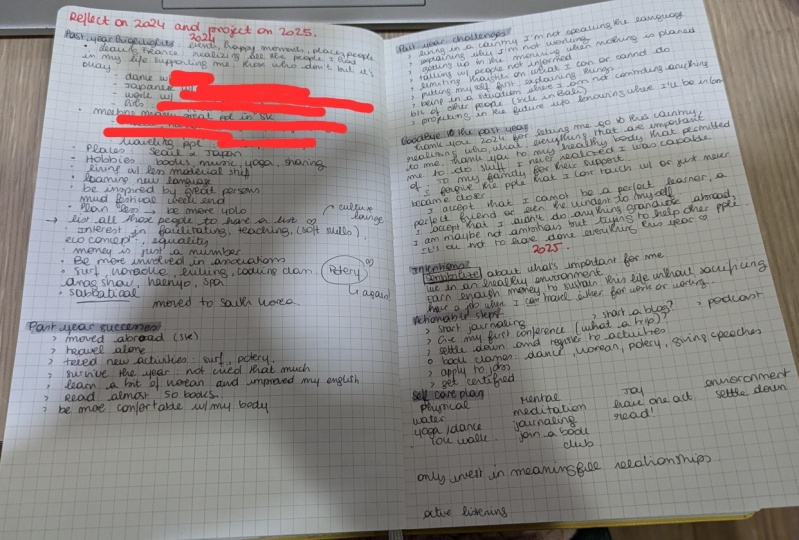 Reflect on 2024 and project on 2025.
Past year highlights: events, happy moments, places, people
2024
leaving France, realizing all the people I had
in my life supporting me. Know who don't but it's
okay
- dance w/
- Japanese w/
- work w/
meeting many great ppl in SK
traveling ppl
Places: Seoul & Japan
Hobbies: books, music, yoga, sharing
living w/ less material stuff
learning new language
be inspired by great persons
mud festival week end
Plan less → be more yolo
→ list all those people to have a list ♡
culture
lounge
interest in facilitating, teaching, (soft skills)
eco concept, equality
money is just a number
Be more involved in associations
surf, noraebang, hiking, coding dam.
drag show, haenyo, spa
Potery
↳ again!
sabbatical
moved to South Korea
Past year successes
> moved abroad (SK)
> travel alone
> tested new activities: surf, potery.
> survive the year. not cried that much
> learn a bit of korean and improved my english
> Read almost 50 books.
> be more confortable w/ my body
Past year challenges
living in a country I'm not speaking the language
explaining when I'm not working
getting up in the morning when nothing is planed
talking w/ people not informed
limiting thoughts on what I can or cannot do
putting my self first, explaining things.
being in a situation where I am not controling anything
bk of other people (bike in Bali)
> projecting in the future w/o knowing where I'll be in 6m
Goodbye to the past year
Thank you 2024 for letting me go to this country,
realising who, what, everything that are important
to me. thank you to my healthy body that permitted
me to do stuff I never realized I was capable
of. To my family for their support.
I forgive the pple that I lost touch w/ or just never
became closer
I accept that I cannot be a perfect learner, a
perfect friend or even the kindest to myself
I accept that I didn't do anything grandiose abroad,
I am maybe not ambitious but trying to help other pple.
It's ok not to have done everything this year ♡
2025.
Intentions
Contribute about what's important for me
live in an healthy environment.
Earn enough money to sustain this life without sacrificing
have a job when I can travel either for work or working.
Actionable steps
> start journaling
> start a blog?
> podcast
> Give my first conference (what a trip)?
> settle down and register to activities
o book classes: dance, korean, potery, giving speeches
> apply to jobs
> get certified
Self care plan
Physical
Mental
Joy
environment
water
meditation
have one act
settle down
yoga/dance
journaling
read!
10K walk
join a book
club
only invest in meaningfull relationships
active listening